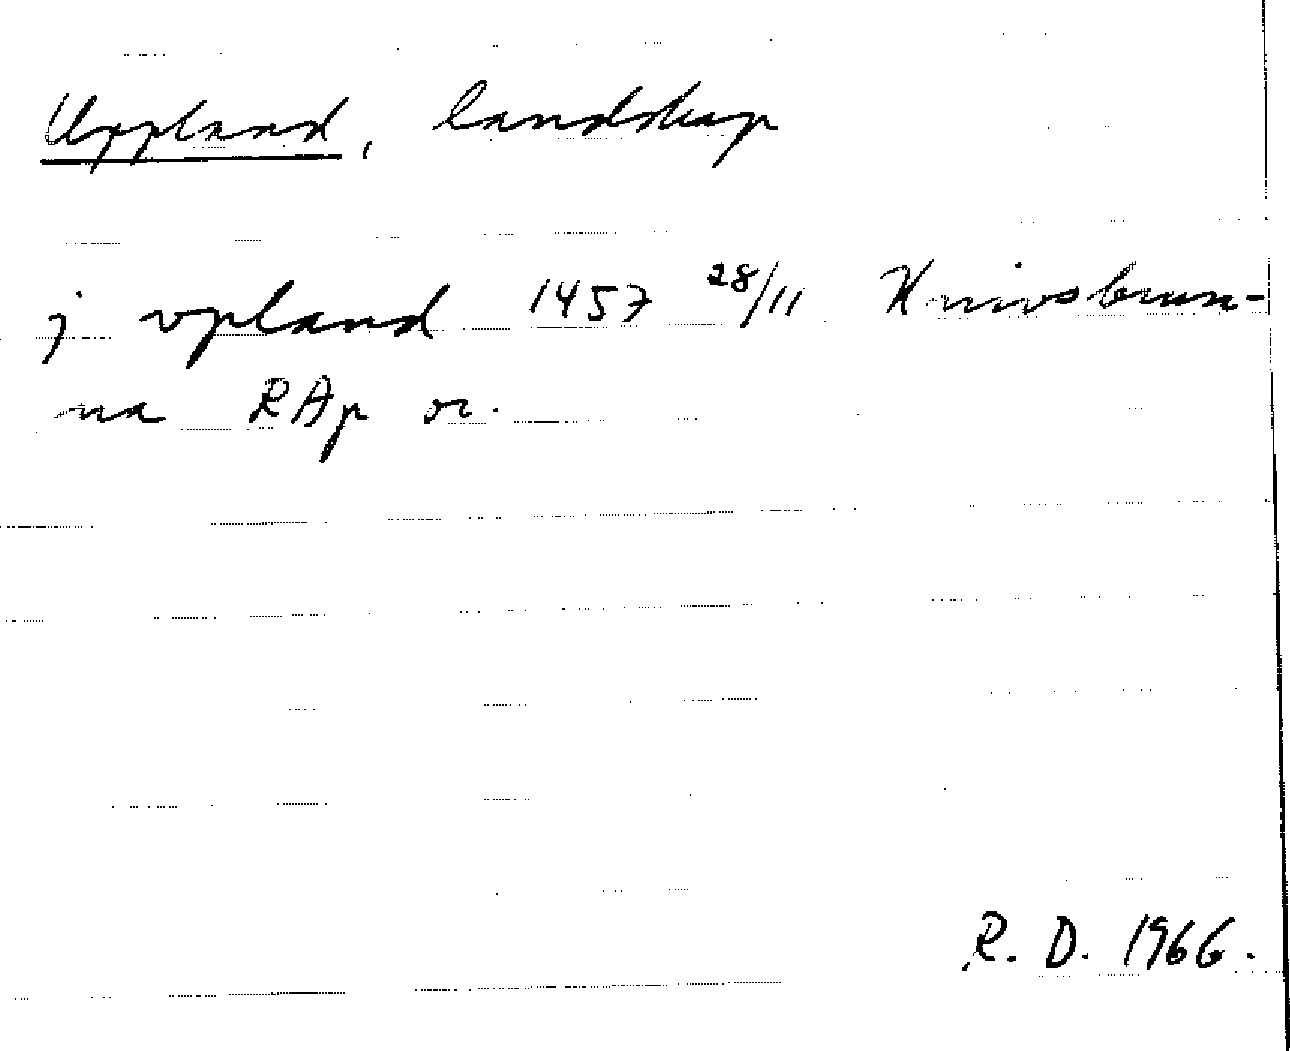 Uppland, landskap
j vpland 1457 28/11 Knivsbrun-
na RAp or.
R. D. 1966.